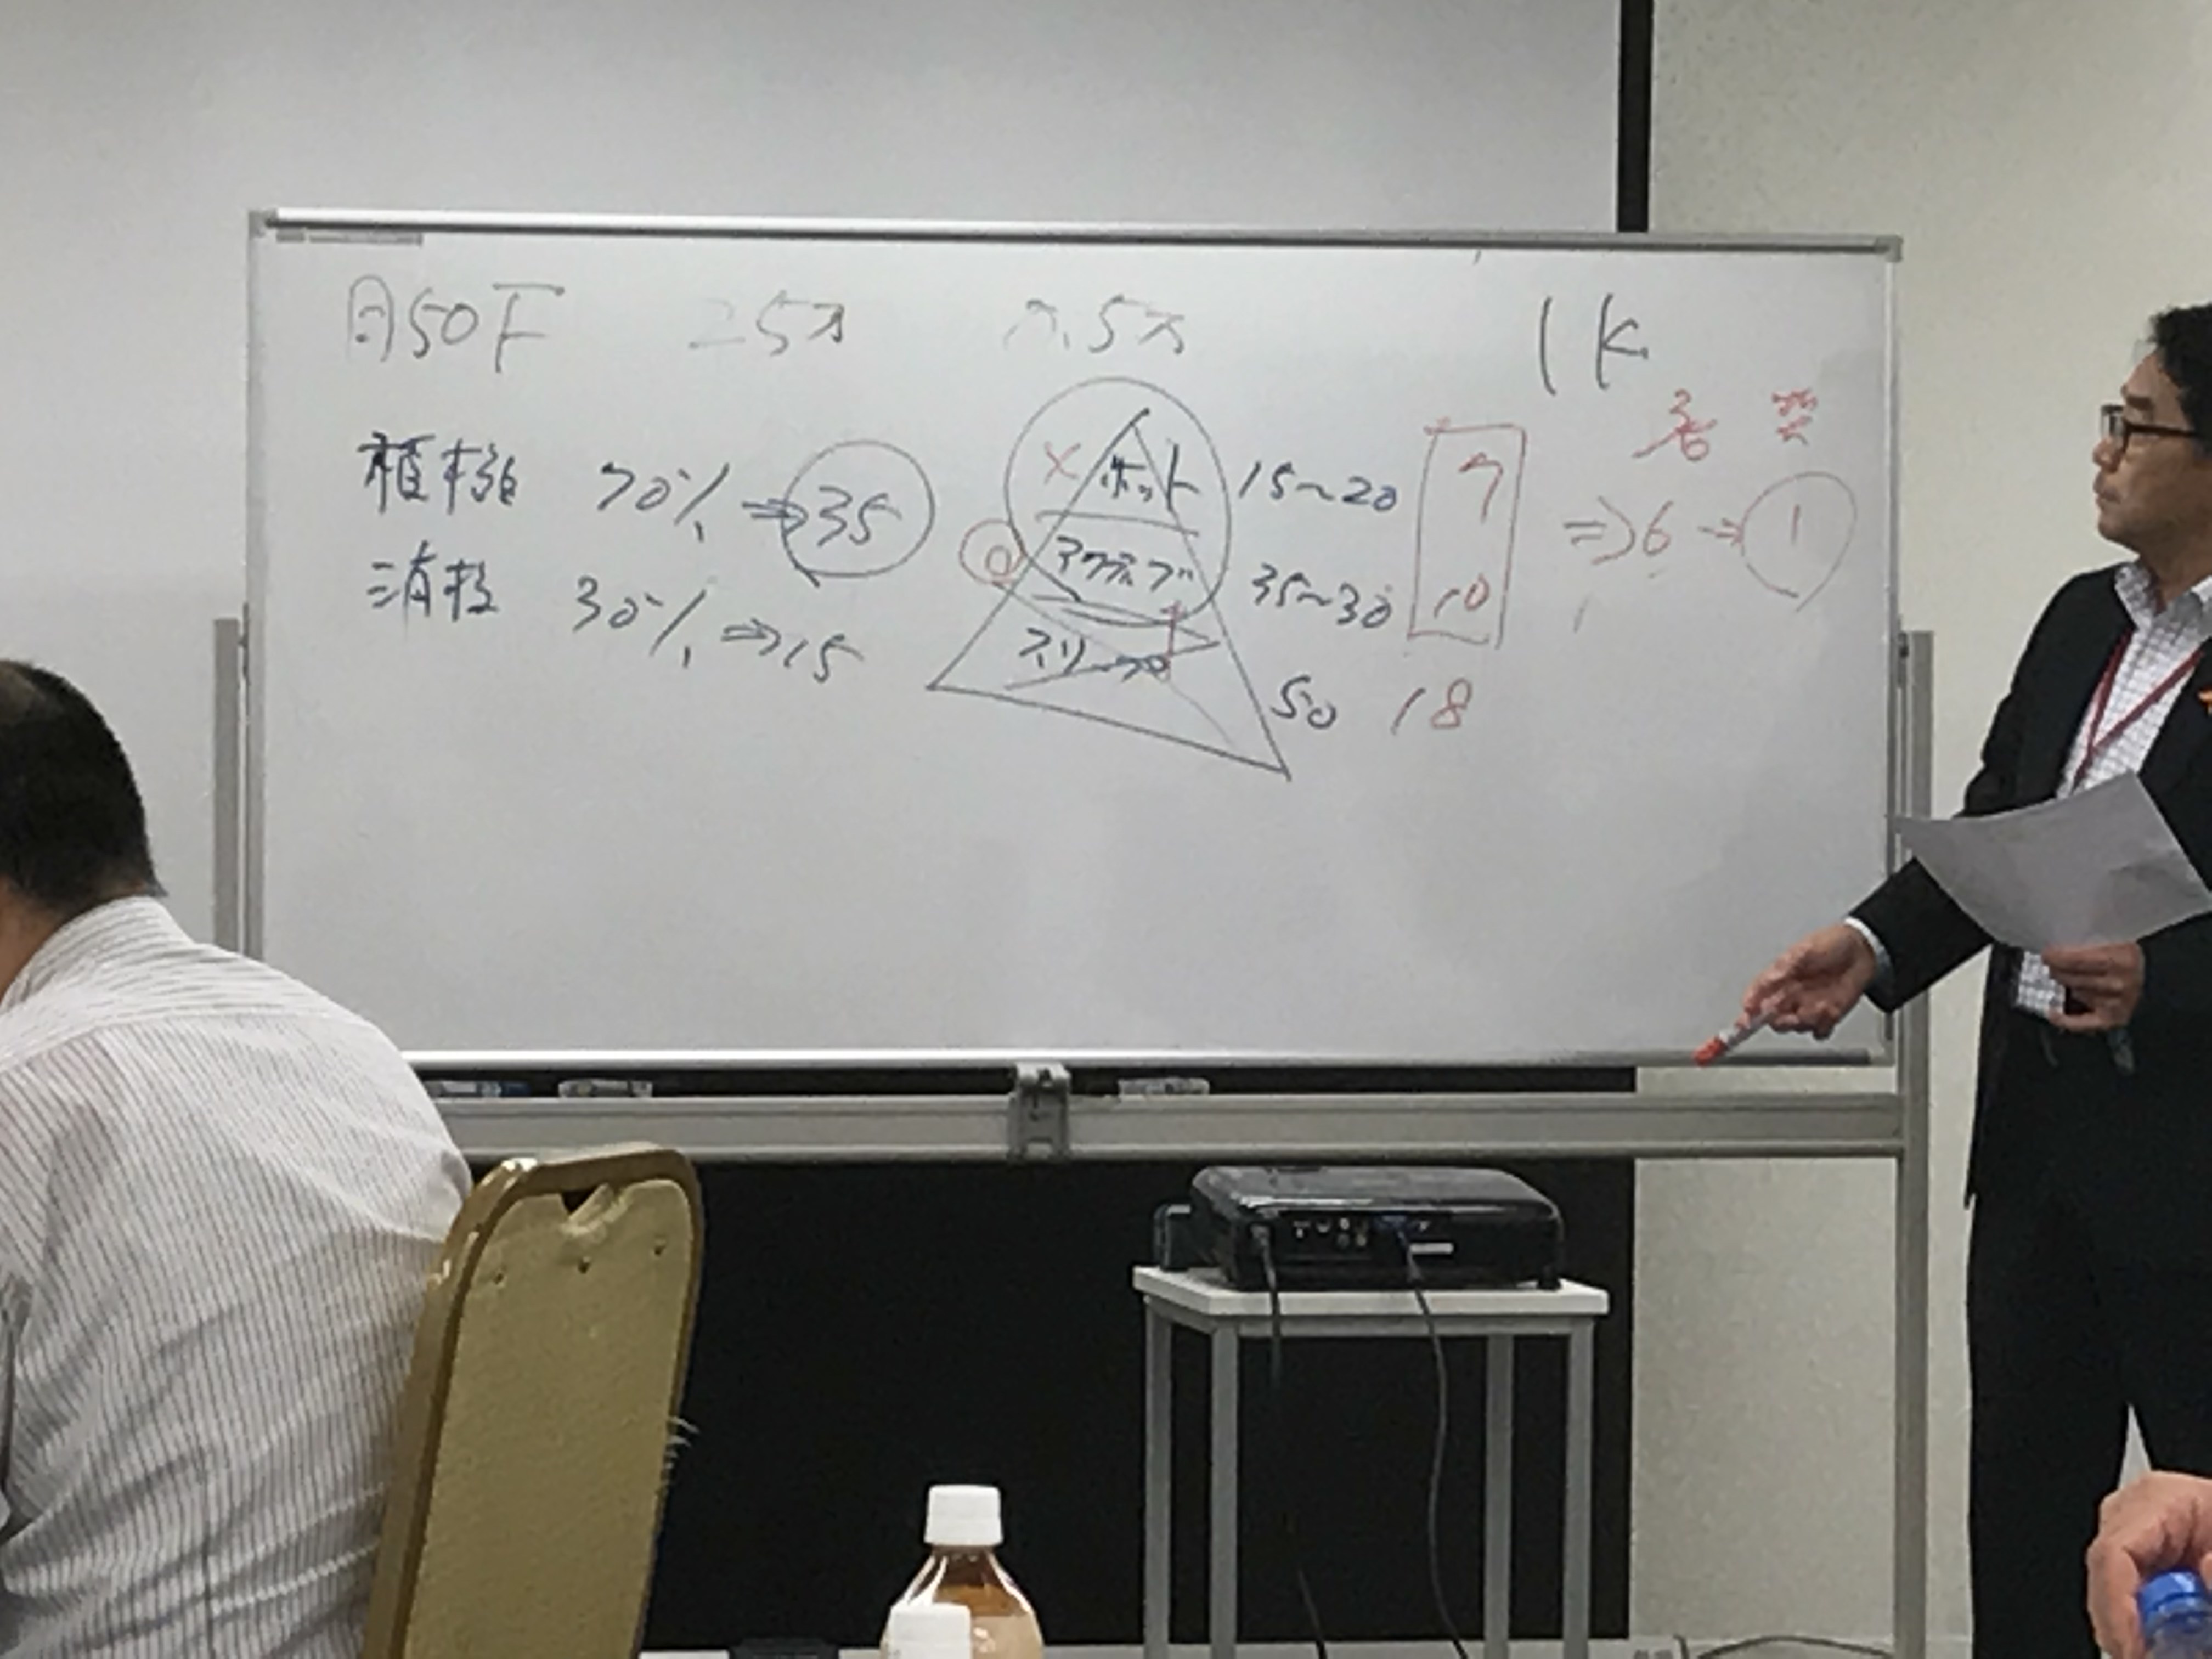 月50下 25万 7.5万 1K
積極 70% ⇒ 35 × ホット 15~20 7 ⇒ 6 → 1
消極 30% ⇒ 15 アクティブ 35~30 10
スリープ 50 18